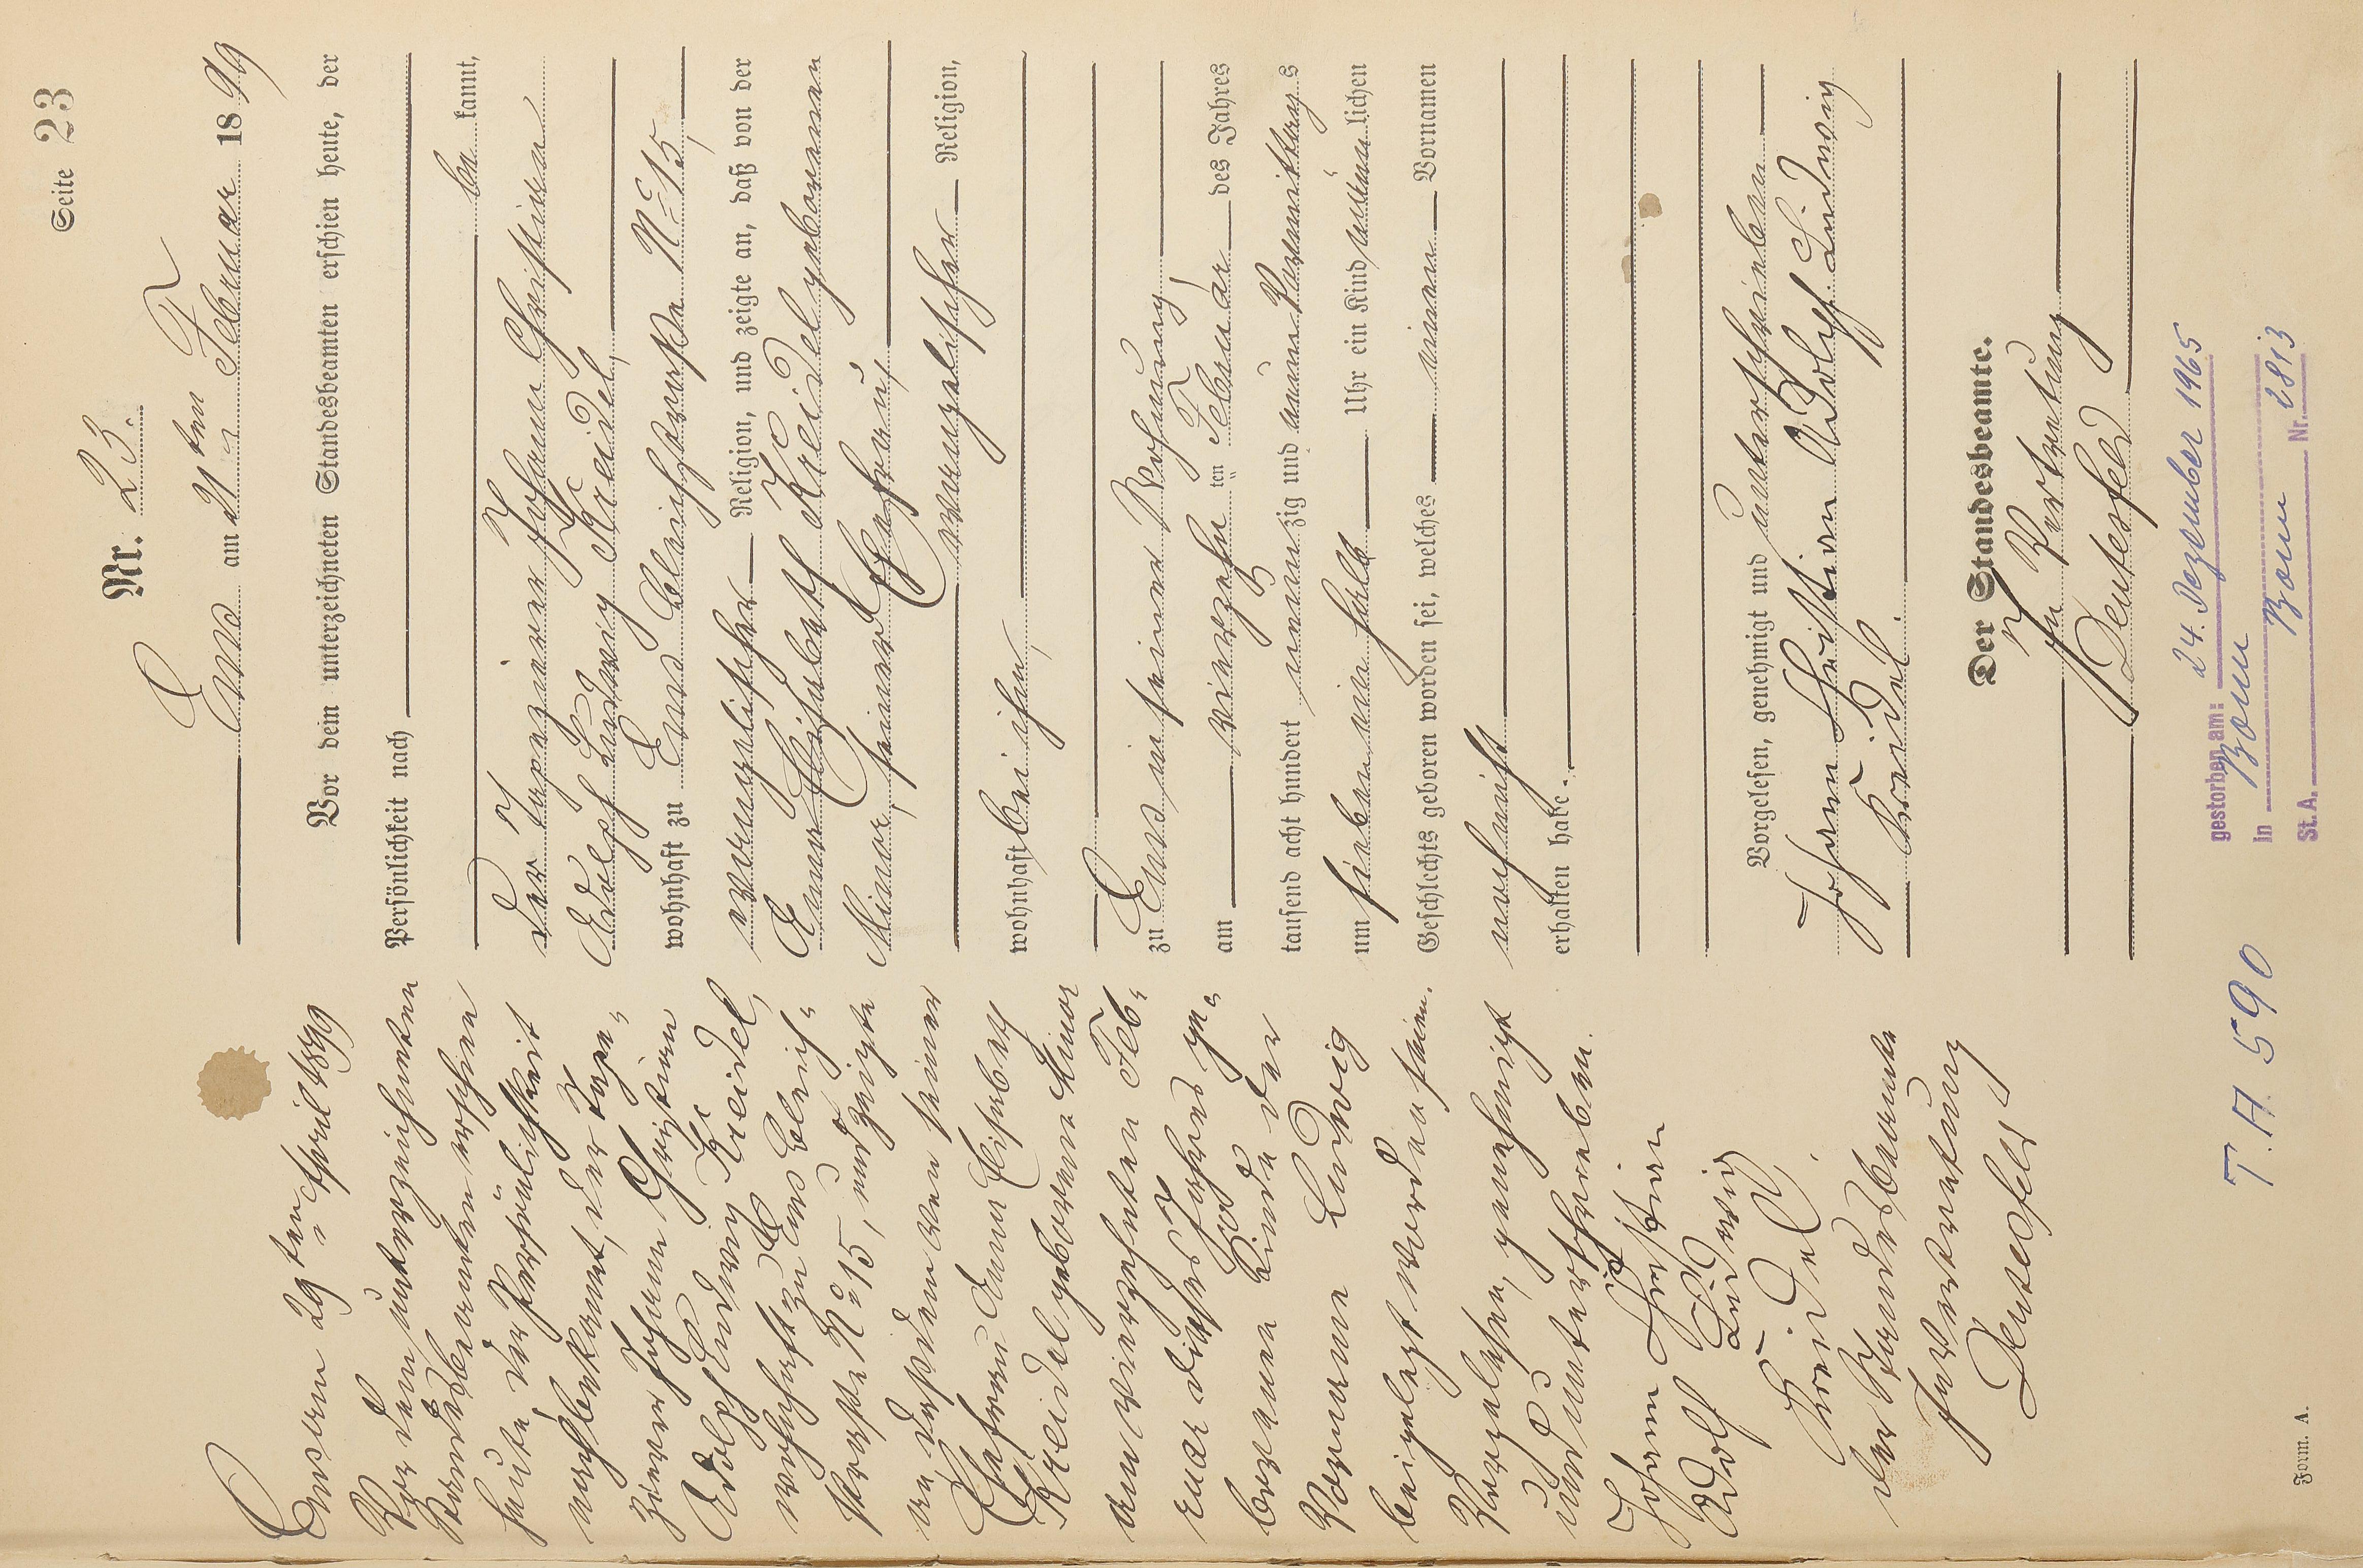 Seite 23
Nr. 23.
Ems am 21ten Februar 1899
Vor dem unterzeichneten Standesbeamten erschien heute, der
Persönlichkeit nach
be kannt,
der Tapezierer Johann Christian
Adolph Ludwig Kreidel,
wohnhaft zu Ems Bleichstraße No 15,
evangelischer Religion, und zeigte an, daß von der
Anna Elisabeth Kreidel geborenen
Minor, seiner Ehefrau,
evangelischer Religion,
wohnhaft bei ihm,
zu Ems in seiner Wohnung,
am vierzehn ten Februar des Jahres
tausend acht hundert neunzig und neun Vormittags
um sieben ein halb Uhr ein Kind männlichen
Geschlechts geboren worden sei, welches einen Vornamen
noch nicht
erhalten habe.
Vorgelesen, genehmigt und unterschrieben
Johann Christian Adolf Ludwig
Kreidel.
Der Standesbeamte.
In Vertretung
Deutesfeld
gestorben am: 24. Dezember 1965
in Bonn
St. A. Bonn Nr. 2813
Ems am 29ten April 1899
Vor dem unterzeichneten
Standesbeamten erschien
heute, der Persönlichkeit
nach bekannt, der Tape-
zierer Johann Christian
Adolph Ludwig Kreidel,
wohnhaft zu Ems Bleich-
straße No 15, und zeigte
an, daß dem von seiner
Ehefrau Anna Elisabeth
Kreidel geborene Minor
am vierzehnten Feb-
ruar dieses Jahres ge-
borenen Kinde der
Vorname Ludwig
beigelegt worden sei.
Vorgelesen, genehmigt
und unterschrieben.
Johann Christian
Adolf Ludwig
Kreidel.
Der Standesbeamte
In Vertretung
Deutesfeld
T. A. 590
Form. A.